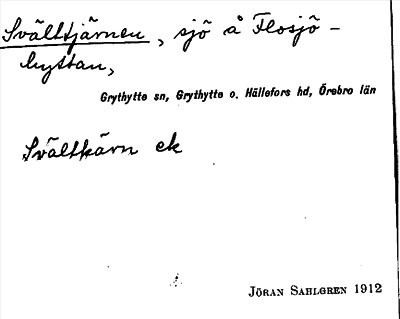 Svälttjärnen, sjö å Flosjö-
hyttan,
Grythytte sn, Grythytte o. Hällefors hd, Örebro län
Svälttkärn ek
JÖRAN SAHLGREN 1912